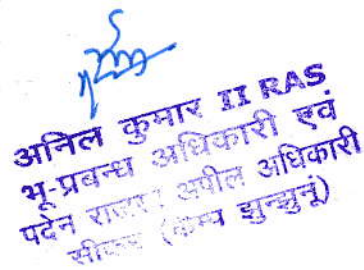 अनिल कुमार II RAS
भू-प्रबन्ध अधिकारी एवं
पदेन अपील अधिकारी
(कैम्प झुन्झुनूं)